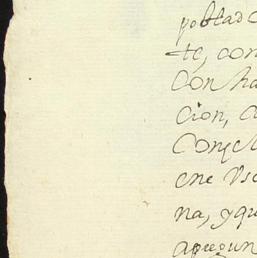 poblad
te, con
Con ha
cion, 
Con
ene Vs
na, yqu
apregun